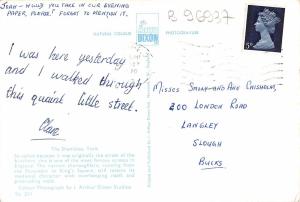 JEAN - WOULD YOU TAKE IN OUR EVENING
PAPER, PLEASE! FORGOT TO MENTION IT.
B 96037
NATURAL COLOUR
DIXON
PHOTOGRAPH
5D
I was here yesterday
and I walked through
this quaint little street.
Clare
MISSES SALLY-AND ANN CHISHOLM,
200 LONDON ROAD
LANGLEY
SLOUGH
BUCKS
The Shambles, York
So called because it was originally the street of the
butchers, this is one of the most famous streets in
England. The narrow thoroughfare, running from
the Pavement to King's Square, still retains its
mediaeval character with overhanging roofs and
protruding
Colour Photograph by J. Arthur Dixon Studios